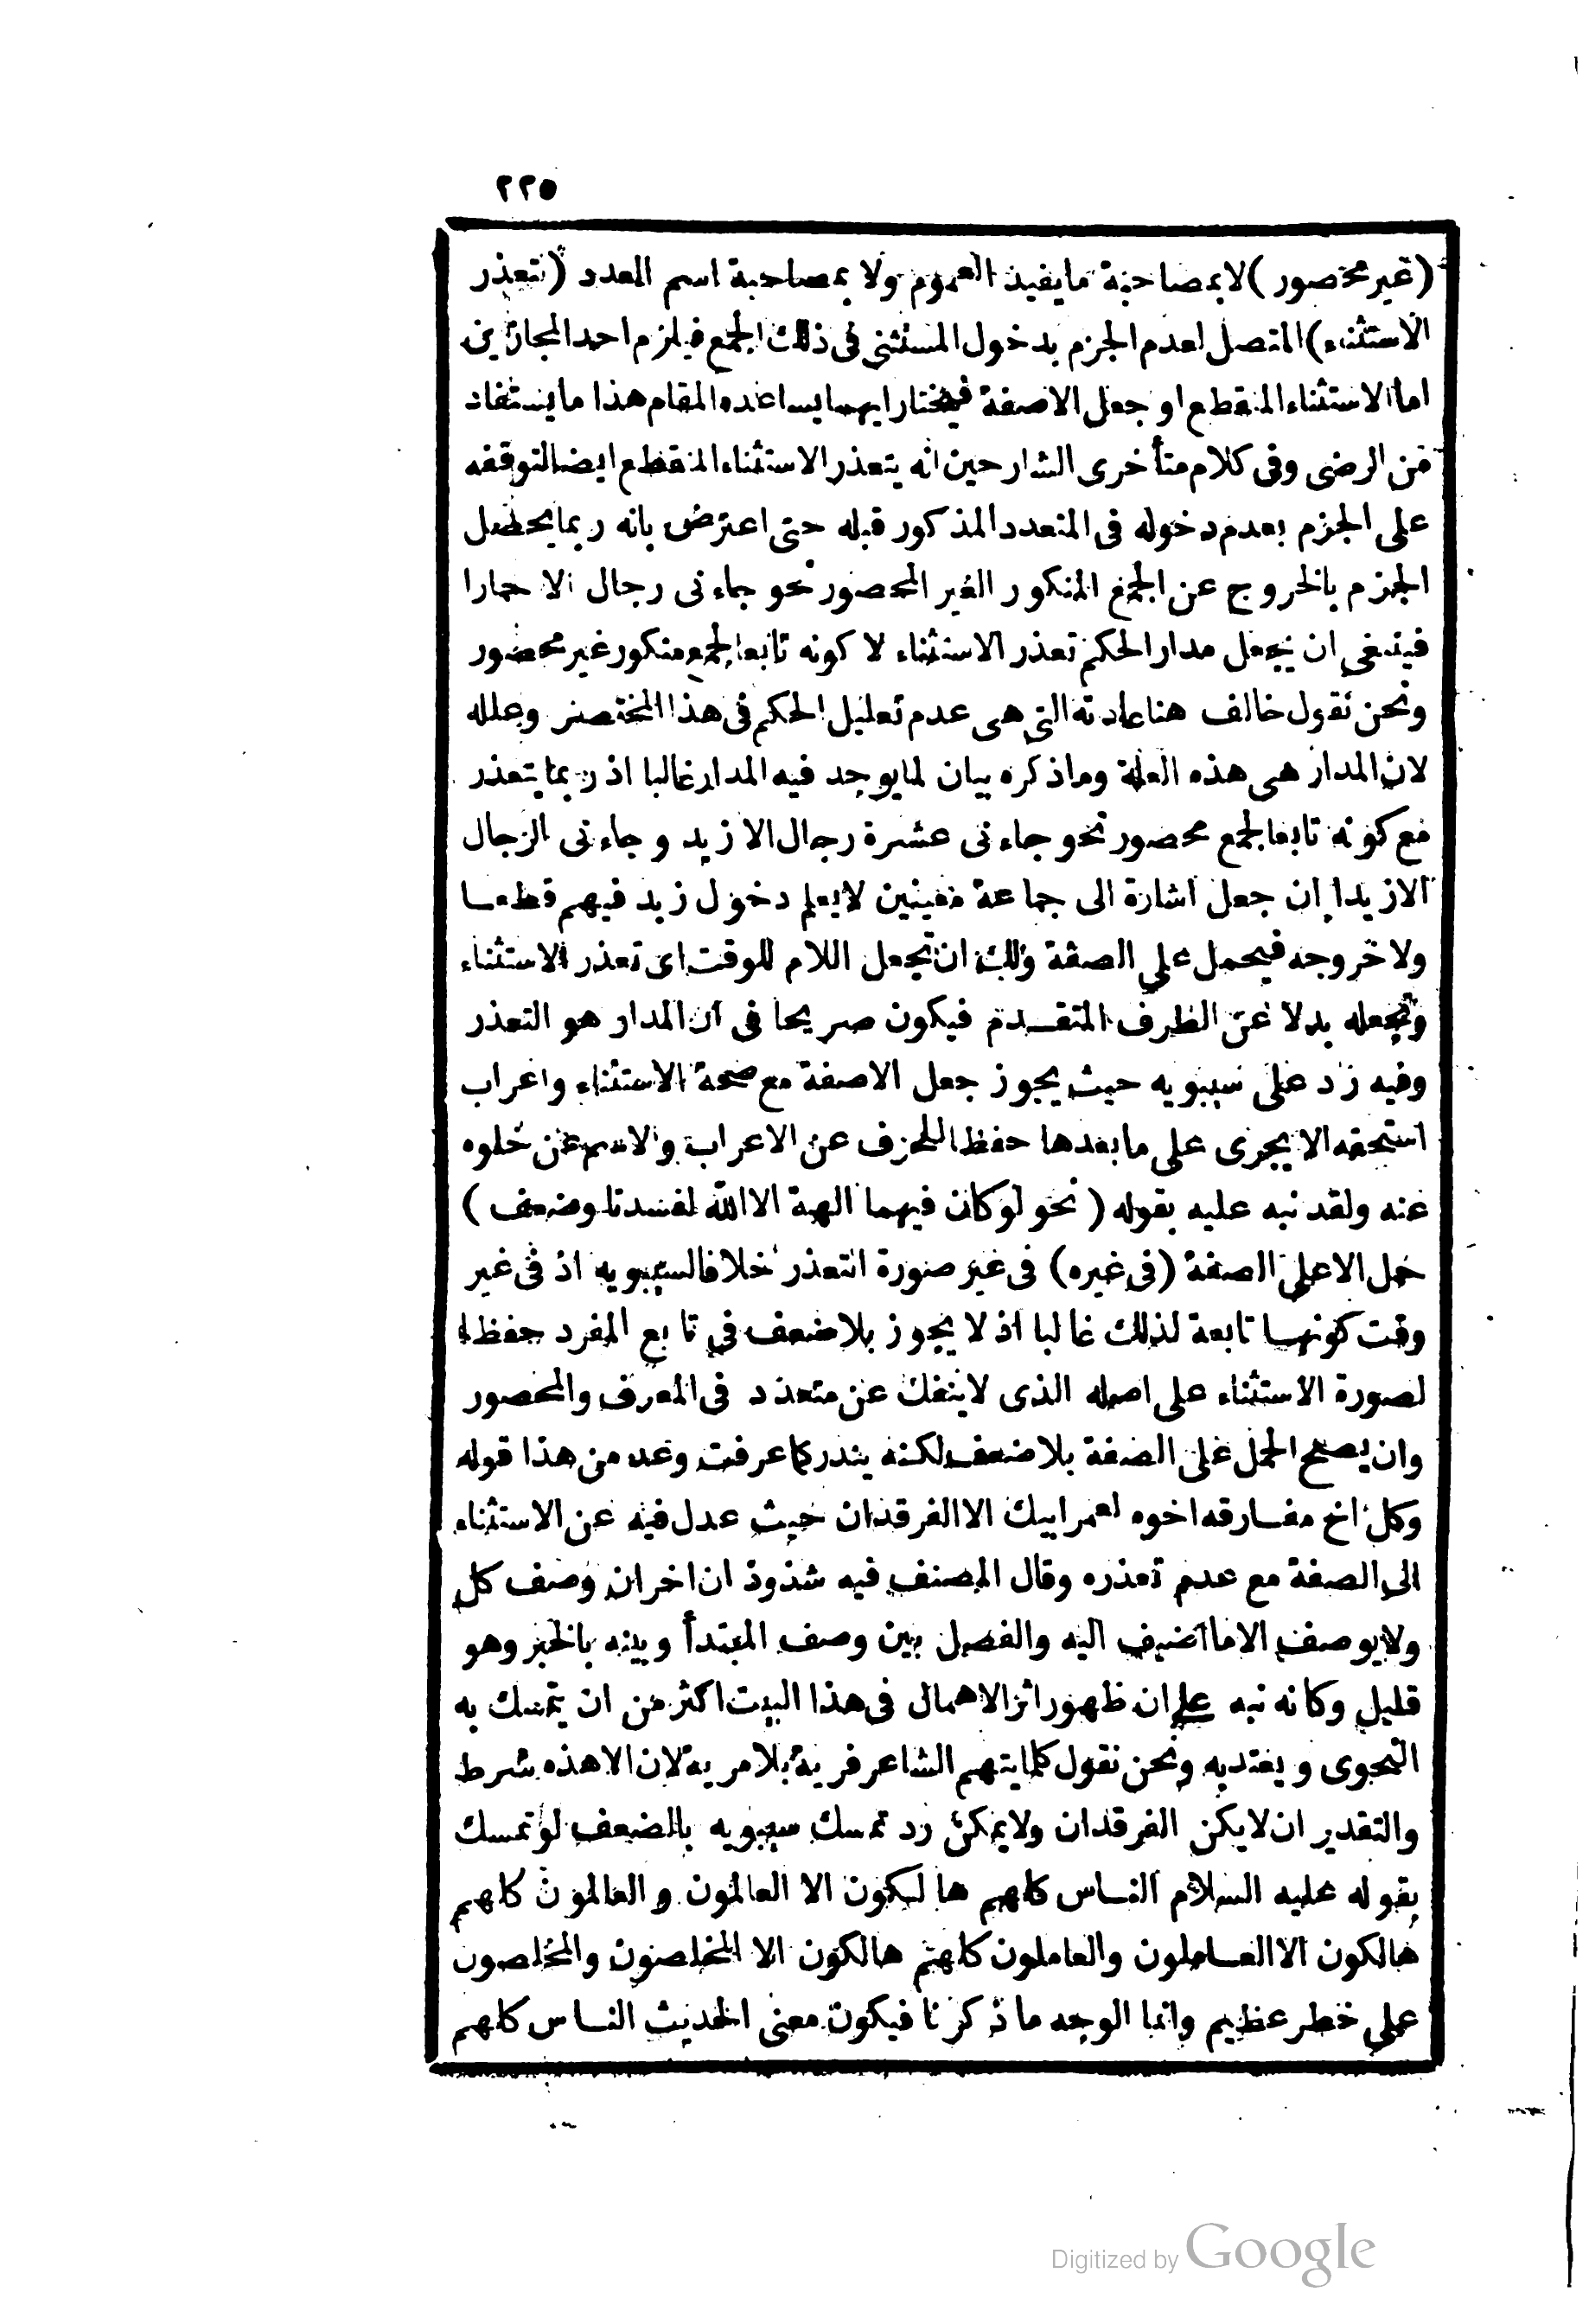 ٢٢٥
(غير محصور) لا بمصاحبة ما يفيد العموم ولا بمصاحبة اسم العدد (لتعذر
الاستثناء) المتصل لعدم الجزم بدخول المستثنى فى ذلك الجمع فيلزم احد المجازين
اما الاستثناء المنقطع او جعل الا صفة فيختار ايهما يساعده المقام هذا ما يستفاد
من الرضى وفى كلام متأخرى الشارحين انه يتعذر الاستثناء المنقطع ايضا لتوقفه
على الجزم بعدم دخوله فى المتعدد المذكور قبله حتى اعترض بانه ربما يحصل
الجزم بالخروج عن الجمع المنكور الغير المحصور نحو جاءنى رجال الا حمارا
فينبغى ان يجعل مدار الحكم تعذر الاستثناء لا كونه تابعا لجمع منكور غير محصور
ونحن نقول خالف هنا عادته التى هى عدم تعليل الحكم فى هذا المختصر وعلله
لان المدار هى هذه العلة وما ذكره بيان لما يوجد فيه المدار غالبا اذ ربما يتعذر
مع كونه تابعا لجمع محصور نحو جاءنى عشرة رجال الا زيد وجاءنى الرجال
الا زيدا ان جعل اشارة الى جماعة معينين لا يعلم دخول زيد فيهم قطعا
ولا خروجه فيحمل على الصفة ولك ان تجعل اللام للوقت اى تعذر الاستثناء
وتجعله بدلا عن الظرف المتقدم فيكون صريحا فى ان المدار هو التعذر
وفيه رد على سيبويه حيث يجوز جعل الا صفة مع صحة الاستثناء واعراب
استحقه الا يجرى على ما بعدها حفظا للحرف عن الاعراب والاسم عن خلوه
عنه ولقد نبه عليه بقوله (نحو لو كان فيهما الهة الا الله لفسدتا وضعف)
حمل الا على الصفة (فى غيره) فى غير صورة التعذر خلافا لسيبويه اذ فى غير
وقت كونها تابعة لذلك غالبا اذ لا يجوز بلا ضعف فى تابع المفرد حفظا
لصورة الاستثناء على اصله الذى لا ينفك عن متعدد فى المعرف والمحصور
وان يصح الحمل على الصفة بلا ضعف لكنه يندر كما عرفت وعد من هذا قوله
وكل اخ مفارقه اخوه لعمر ابيك الا الفرقدان حيث عدل فيه عن الاستثناء
الى الصفة مع عدم تعذره وقال المصنف فيه شذوذ ان اخران وصف كل
ولا يوصف الا ما اضيف اليه والفصل بين وصف المبتدأ وبينه بالخبر وهو
قليل وكانه نبه على ان ظهور اثر الاهمال فى هذا البيت اكثر من ان يتمسك به
النحوى ويعتد به ونحن نقول كلما يتهم الشاعر فرية بلا مرية لان الا هذه شرط
والتقدير ان لا يكن الفرقدان ولا يمكن رد تمسك سيبويه بالضعف لو تمسك
بقوله عليه السلام الناس كلهم هالكون الا العالمون والعالمون كلهم
هالكون الا العاملون والعاملون كلهم هالكون الا المخلصون والمخلصون
على خطر عظيم وانما الوجه ما ذكرنا فيكون معنى الحديث الناس كلهم
Digitized by Google